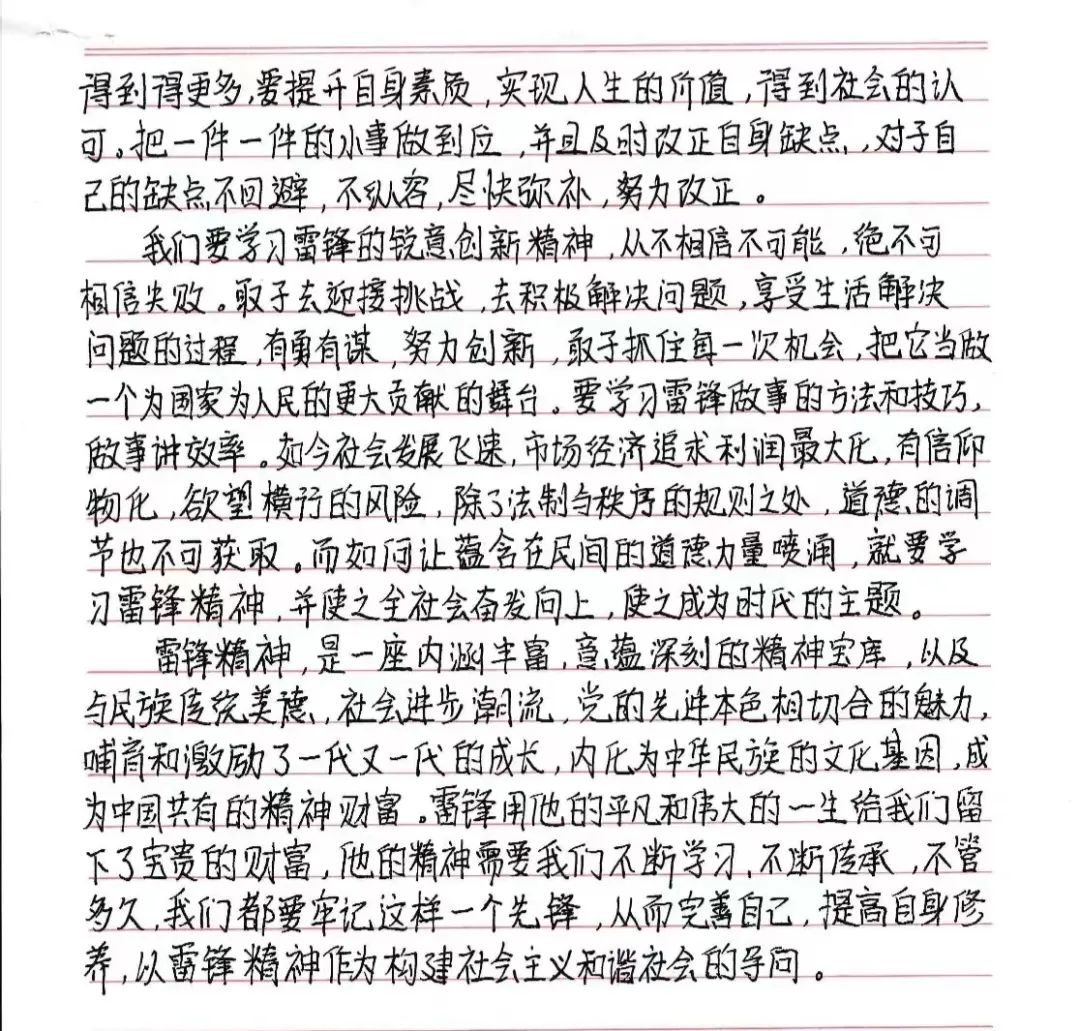 得到得更多,要提升自身素质,实现人生的价值,得到社会的认
可。把一件一件的小事做到应,并且及时改正自身缺点,对于自
己的缺点不回避,不纵容,尽快弥补,努力改正。
我们要学习雷锋的锐意创新精神,从不相信不可能,绝不可
相信失败。敢于去迎接挑战,去积极解决问题,享受生活解决
问题的过程,有勇有谋,努力创新,敢于抓住每一次机会,把它当做
一个为国家为人民的更大贡献的舞台。要学习雷锋做事的方法和技巧,
做事讲效率。如今社会发展飞速,市场经济追求利润最大化,有信仰
物化,欲望横行的风险,除了法制与秩序的规则之处,道德的调
节也不可获取。而如何让蕴含在民间的道德力量喷涌,就要学
习雷锋精神,并使之全社会奋发向上,使之成为时代的主题。
雷锋精神,是一座内涵丰富,意蕴深刻的精神宝库,以及
与民族传统美德,社会进步潮流,党的先进本色相切合的魅力,
哺育和激励了一代又一代的成长,内化为中华民族的文化基因,成
为中国共有的精神财富。雷锋用他的平凡和伟大的一生给我们留
下了宝贵的财富,他的精神需要我们不断学习、不断传承,不管
多久,我们都要牢记这样一个先锋,从而完善自己,提高自身修
养,以雷锋精神作为构建社会主义和谐社会的导向。